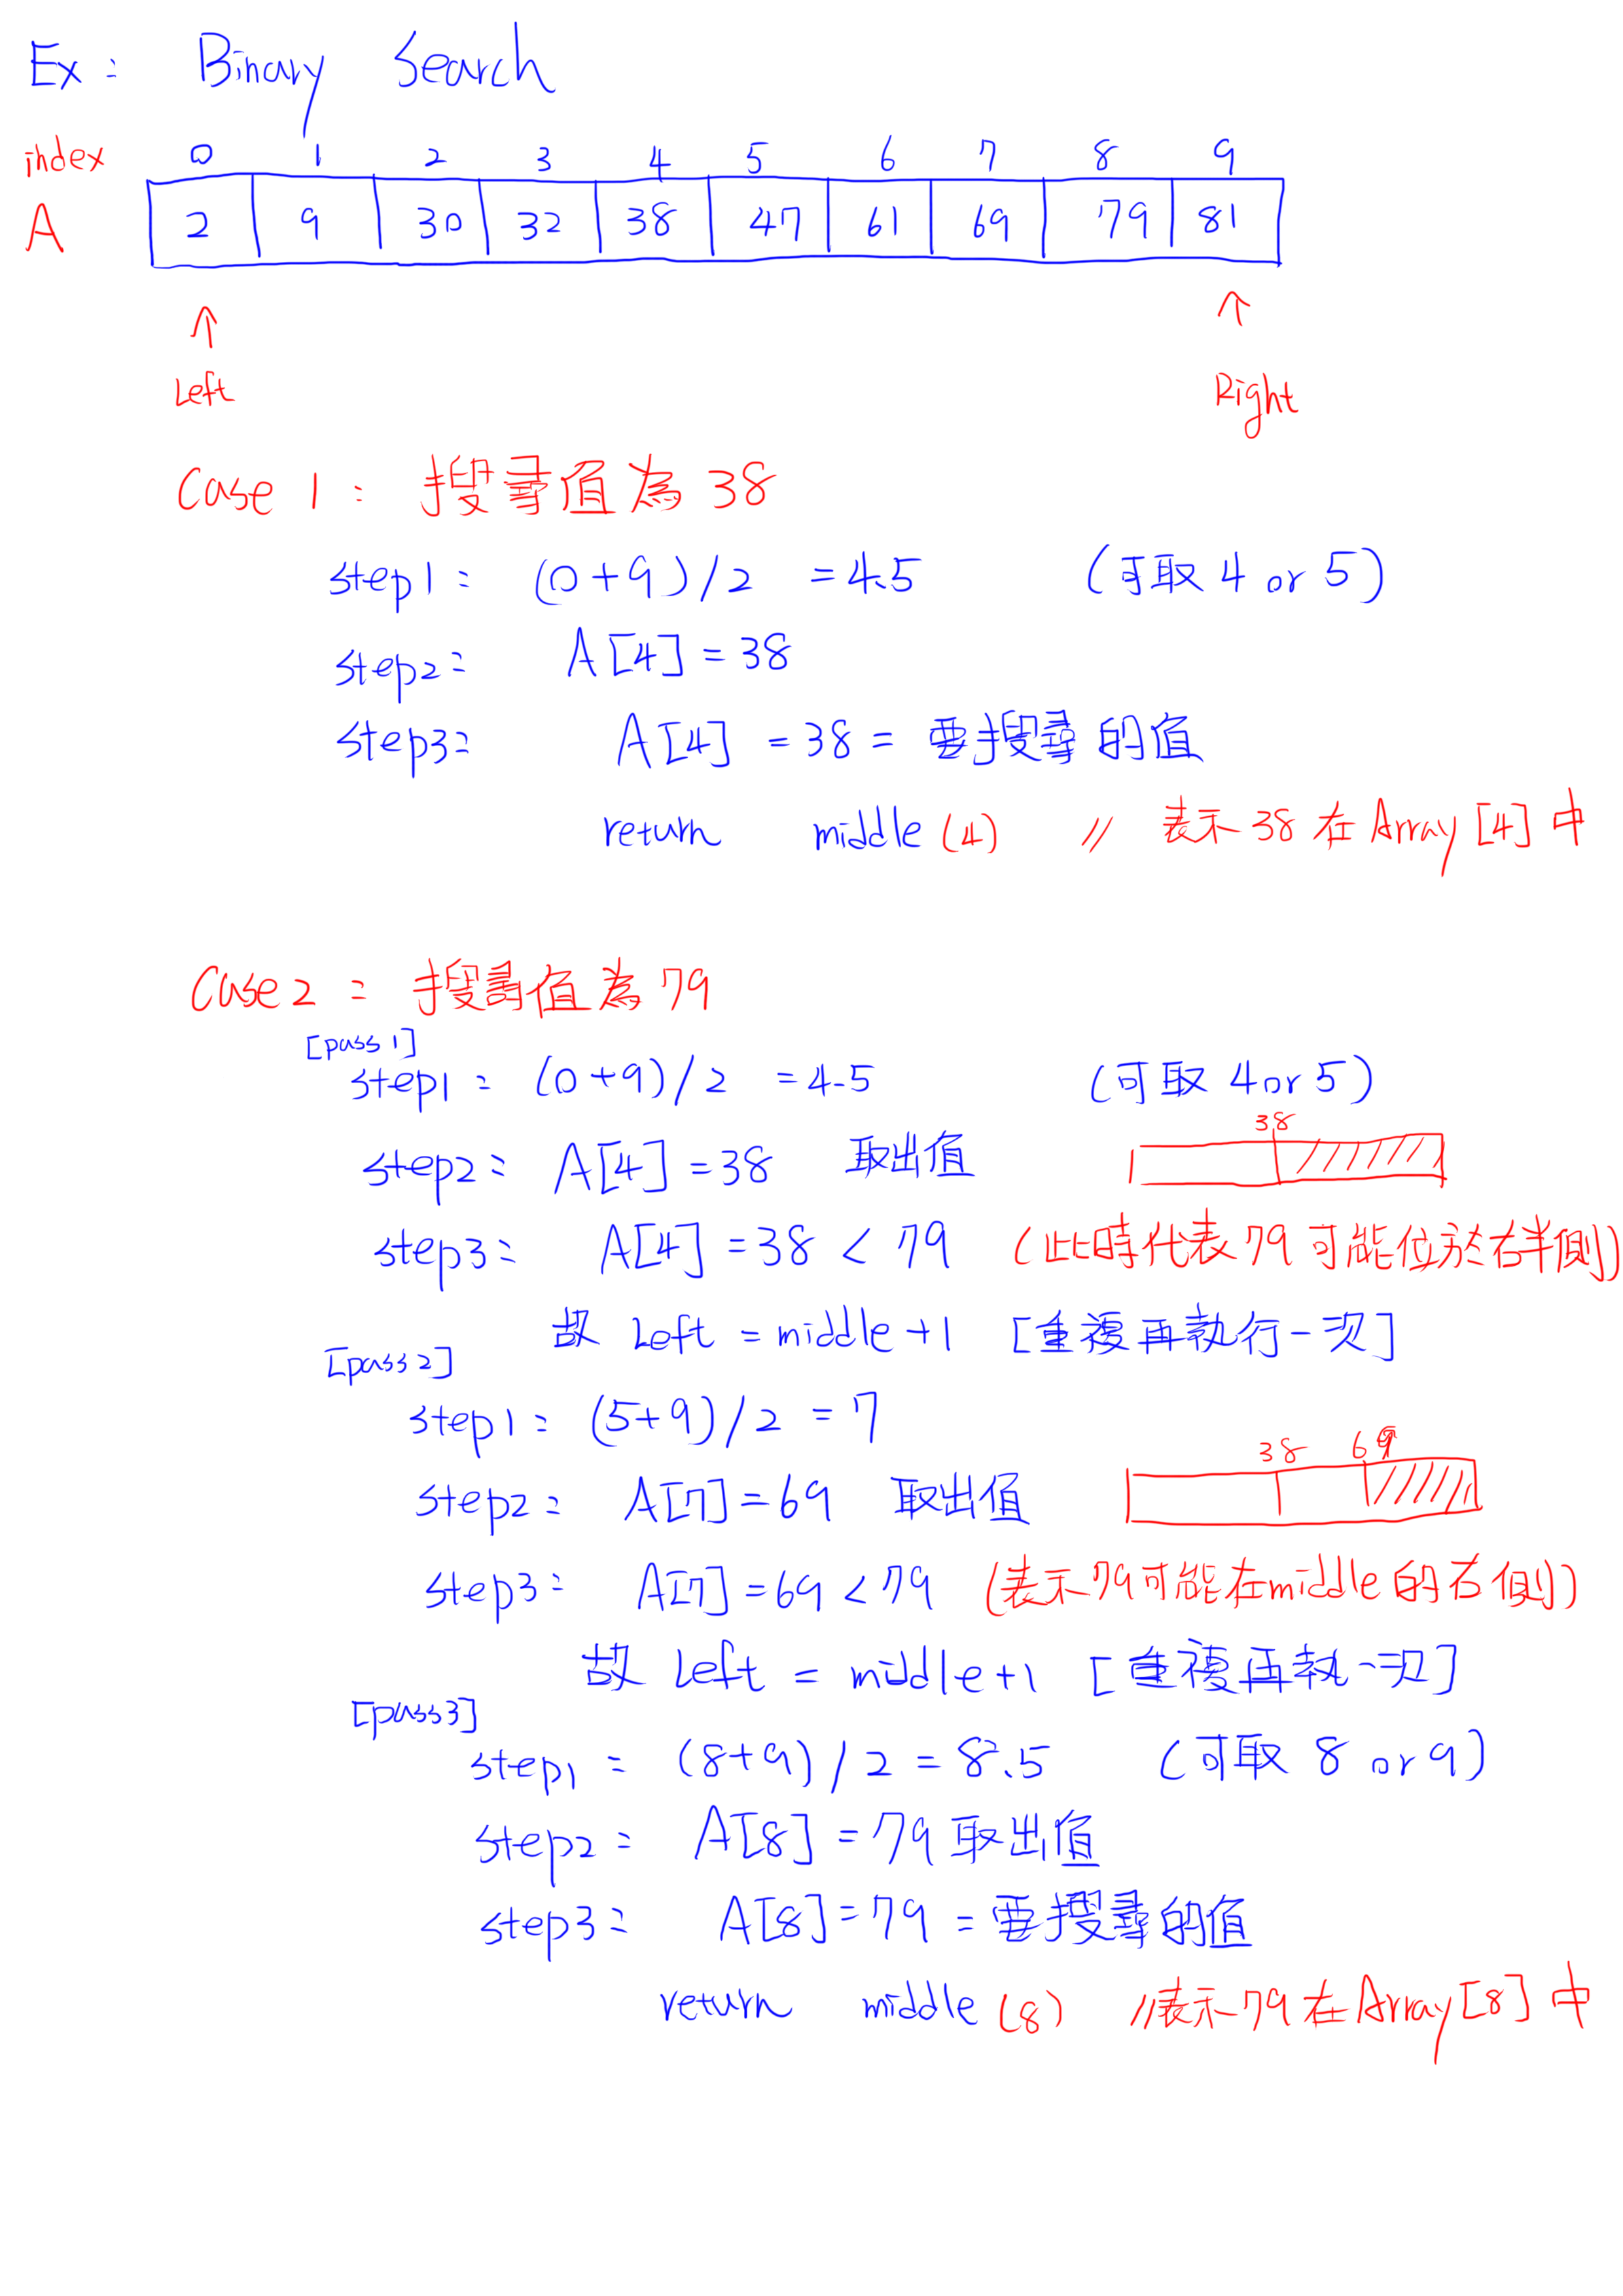 Ex: Binary Search
index 0 1 2 3 4 5 6 7 8 9
A 2 9 30 32 38 47 61 69 79 81
Left Right
Case 1: 搜尋值為 38
step1: (0+9)/2 =4.5 (可取 4 or 5)
step2: A[4]=38
step3: A[4] =38= 要搜尋的值
return middle (4) // 表示 38 在 Array[4] 中
Case2: 搜尋值為 79
[pass1]
step1: (0+9)/2 =4.5 (可取 4 or 5)
38
step2: A[4]=38 取出值
step3: A[4]=38 < 79 (此時代表 79 可能位於右半側)
故 Left = middle +1 [重複再執行一次]
[pass2]
step1: (5+9)/2 =7
38 69
step2: A[7]=69 取出值
step3: A[7]=69 <79 (表示79可能在middle的右側)
故 Left = middle+1 [重複再執一次]
[pass3]
step1: (8+9)/2=8.5 (可取 8 or 9)
step2: A[8]=79 取出值
step3: A[8]=79 =要搜尋的值
return middle (8) //表示79在Array[8]中